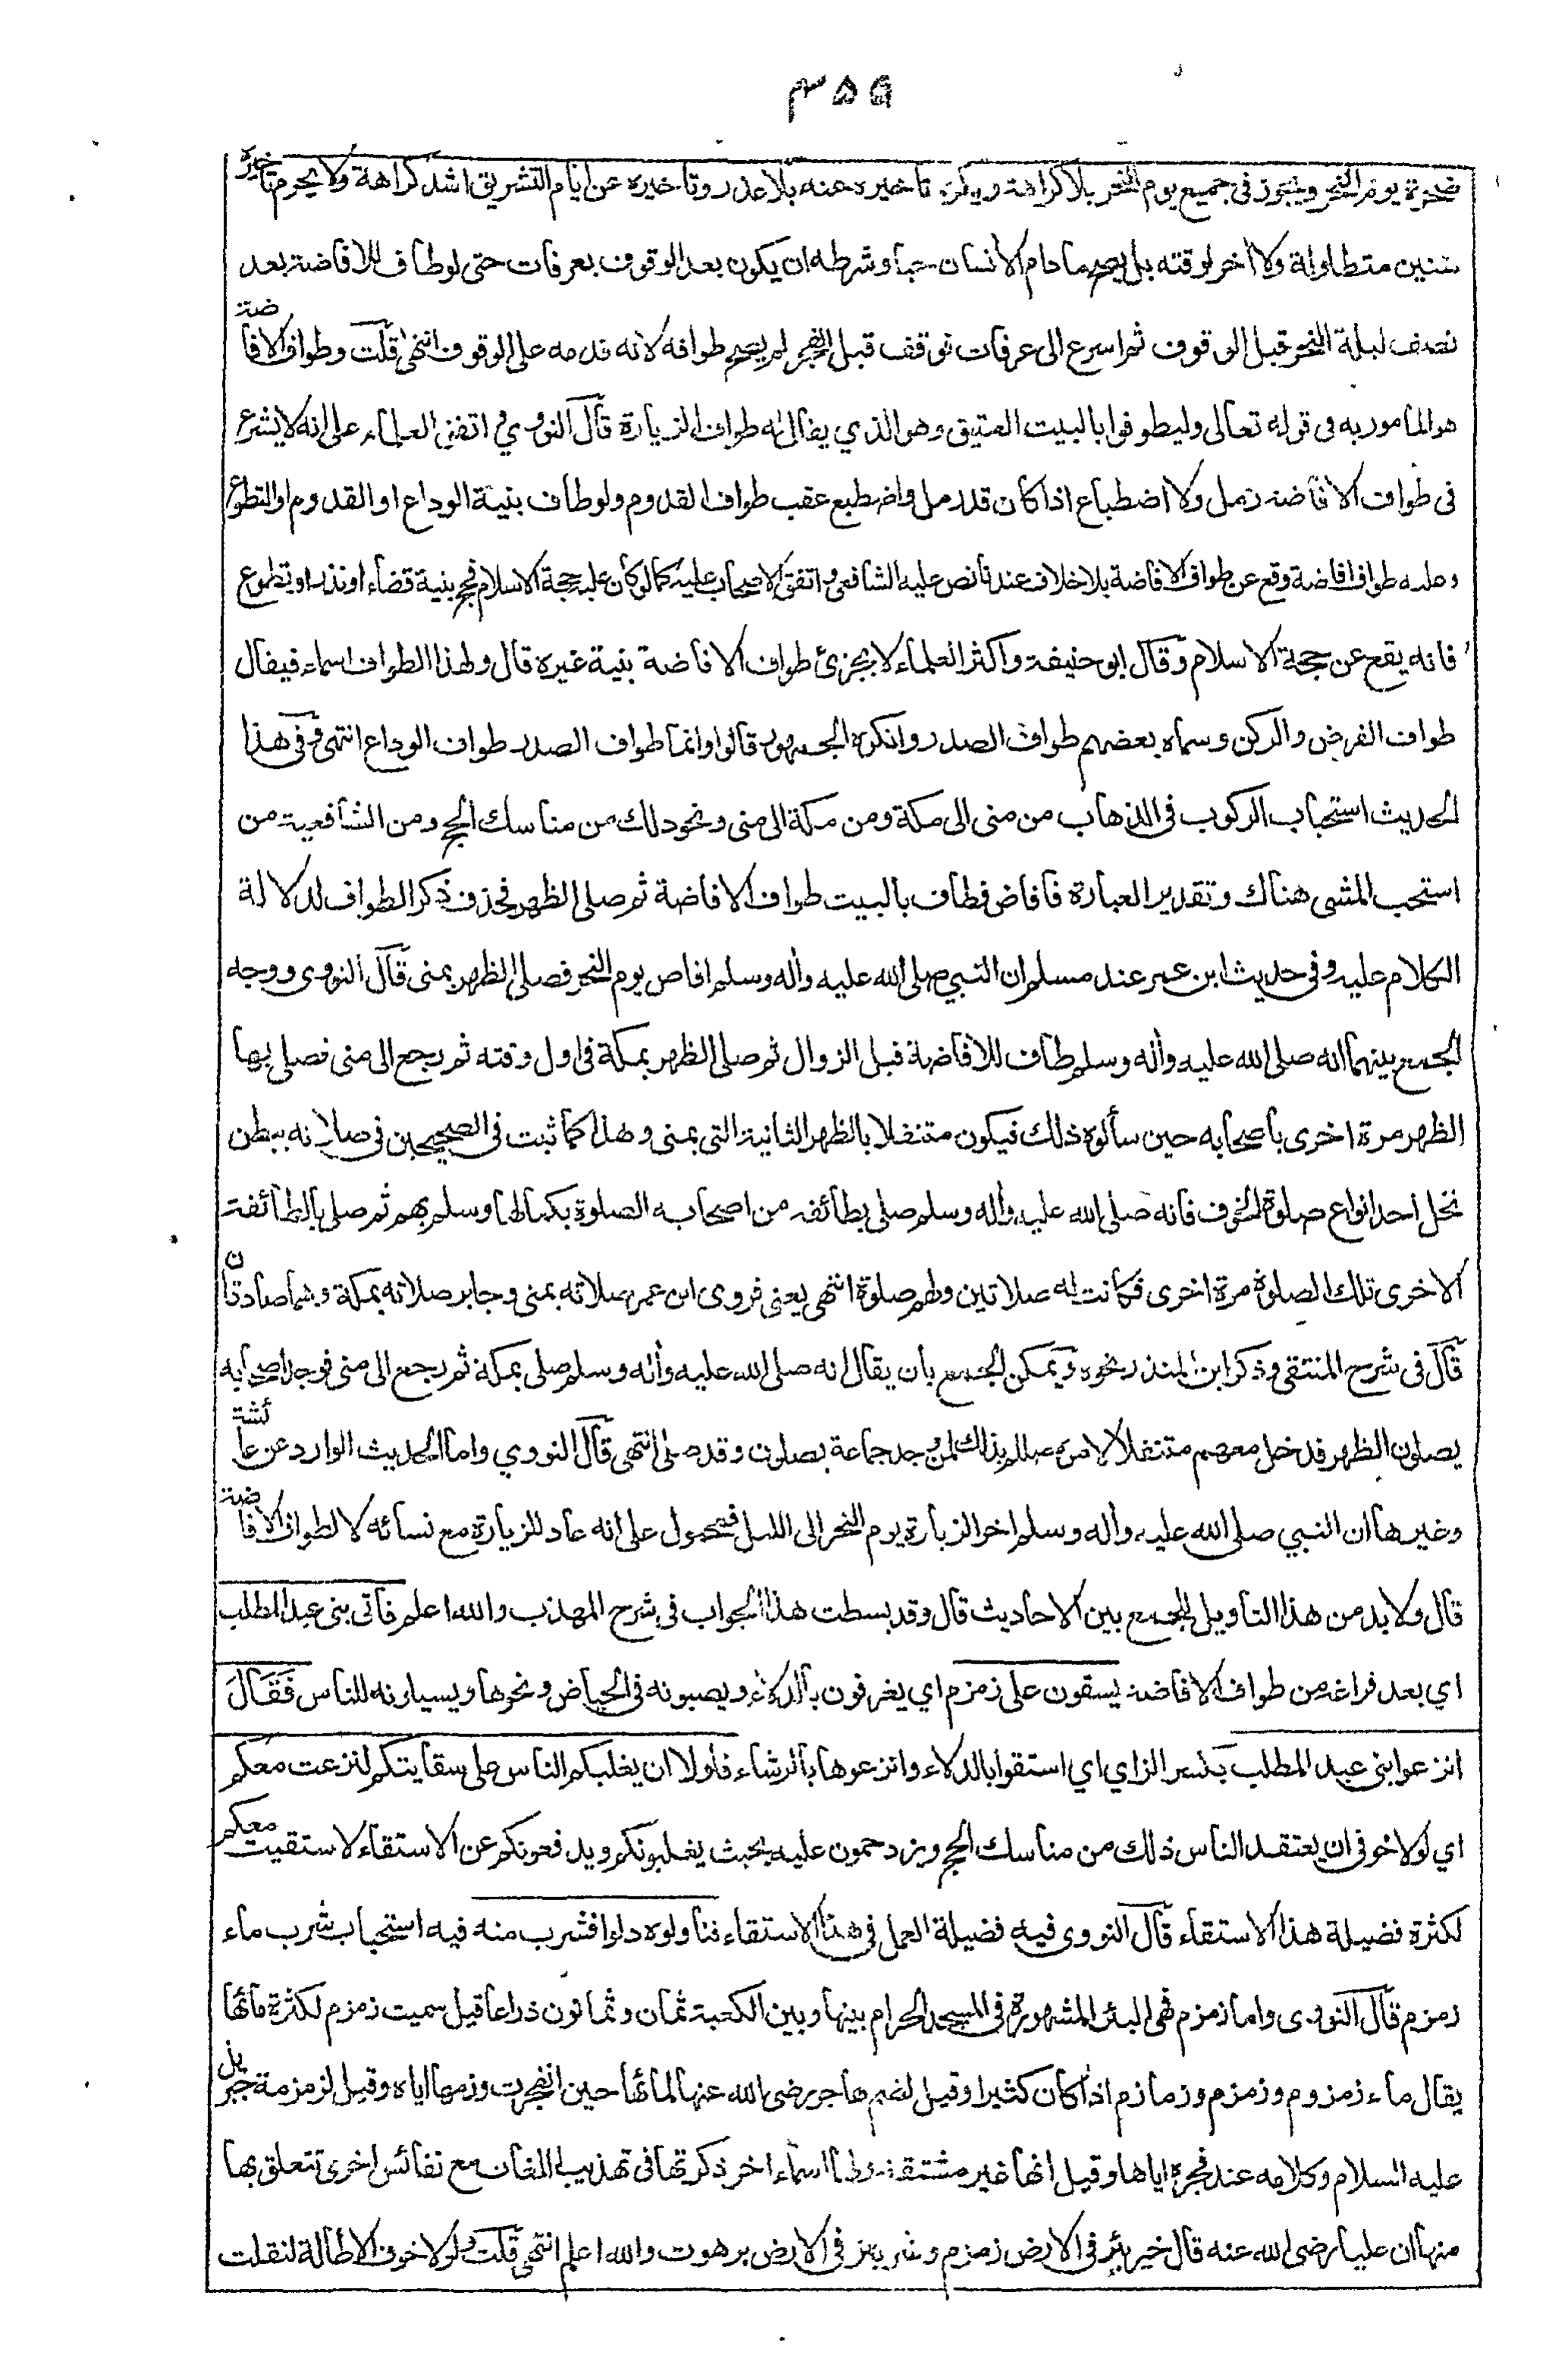 ٣٥٩
ضحوة يوم النحر ويجوز فى جميع يوم النحر بلا كراهة ويكره تاخيره عنه بلا عذر وتاخيره عن ايام التشريق اشد كراهة ولا يحرم تاخيره
سنين متطاولة ولا أخر لوقته بل يصح ما دام الانسان حيا وشرطه ان يكون بعد الوقوف بعرفات حتى لو طاف للافاضة بعد
نصف ليلة النحر قبل الوقوف ثم اسرع الى عرفات فوقف قبل الفجر لم يصح طوافه لانه قدمه على الوقوف انتهى قلت وطواف الافاضة
هو المأمور به فى قوله تعالى وليطوفوا بالبيت العتيق وهو الذي يقال له طواف الزيارة قال النووي واتفق العلماء على انه لا يشرع
فى طواف الافاضة رمل ولا اضطباع اذا كان قد رمل واضطبع عقب طواف القدوم ولو طاف بنية الوداع او القدوم او التطوع
وعليه طواف افاضة وقع عن طواف الافاضة بلا خلاف عندنا نص عليه الشافعي واتفق الاصحاب عليه كما لو كان عليه حجة الاسلام فحج بنية قضاء او نذر او تطوع
فانه يقع عن حجة الاسلام وقال ابو حنيفة واكثر العلماء لا يجزئ طواف الافاضة بنية غيره قال ولهذا الطواف اسماء فيقال
طواف الفرض والركن وسماه بعضهم طواف الصدر وانكره الجمهور قالوا وانما طواف الصدر طواف الوداع انتهى وفى هذا
الحديث استحباب الركوب فى الذهاب من منى الى مكة ومن مكة الى منى ونحو ذلك من مناسك الحج ومن الشافعية من
استحب المشى هناك وتقدير العبارة فافاض فطاف بالبيت طواف الافاضة ثم صلى الظهر فحذف ذكر الطواف لدلالة
الكلام عليه وفى حديث ابن عمر عند مسلم ان النبي صلى الله عليه وأله وسلم افاض يوم النحر فصلى الظهر بمنى قال النووى ووجه
الجمع بينهما انه صلى الله عليه وأله وسلم طاف للافاضة قبل الزوال ثم صلى الظهر بمكة فى اول وقته ثم رجع الى منى فصلى بها
الظهر مرة اخرى باصحابه حين سألوه ذلك فيكون متنفلا بالظهر الثانية التى بمنى وهذا كما ثبت فى الصحيحين فى صلاته ببطن
نخل احد انواع صلوة الخوف فانه صلى الله عليه وأله وسلم صلى بطائفة من اصحابه الصلوة بكمالها وسلم بهم ثم صلى بالطائفة
الاخرى تلك الصلوة مرة اخرى فكانت له صلاتين ولهم صلوة انتهى يعنى فروى ابن عمر صلاته بمنى وجابر صلاته بمكة وهما صادقان
قال فى شرح المنتقى وذكر ابن المنذر نحوه ويمكن الجمع بأن يقال انه صلى الله عليه وأله وسلم صلى بمكة ثم رجع الى منى فوجد اصحابه
يصلون الظهر فدخل معهم متنفلا لامره صللم بذلك لمن وجد جماعة يصلون وقد صلى انتهى قال النووي واما الحديث الوارد عن عائشة
وغيرها ان النبي صلى الله عليه وأله وسلم اخر الزيارة يوم النحر الى الليل فمحمول على انه عاد للزيارة مع نسائه لا لطواف الافاضة
قال ولا بد من هذا التأويل للجمع بين الاحاديث قال وقد بسطت هذا الجواب فى شرح المهذب والله اعلم فأتى بنى عبد المطلب
اي بعد فراغه من طواف الافاضة يسقون على زمزم اي يغرفون بالدلاء ويصبونه فى الحياض ونحوها ويسبلونه للناس فَقَالَ
انزعوا بنى عبد المطلب بكسر الزاي اي استقوا بالدلاء وانزعوها بالرشاء فلولا ان يغلبكم الناس على سقايتكم لنزعت معكم
اي لولا خوفى ان يعتقد الناس ذلك من مناسك الحج ويزدحمون عليه بحيث يغلبونكم ويدفعونكم عن الاستقاء لاستقيت معكم
لكثرة فضيلة هذا الاستقاء قال النووى فيه فضيلة العمل فى هذا الاستقاء فناولوه دلوا فشرب منه فيه استحباب شرب ماء
زمزم قال النووى واما زمزم فهى البئر المشهورة فى المسجد الحرام بينها وبين الكعبة ثمان وثمانون ذراعا قيل سميت زمزم لكثرة مائها
يقال ماء زمزوم وزمزم وزمازم اذا كان كثيرا وقيل لضم هاجر رضى الله عنها لمائها حين انفجرت وزمها اياه وقيل لزمزمة جبريل
عليه السلام وكلامه عند فجره اياها وقيل انها غير مشتقة ولها اسماء اخر ذكرتها فى تهذيب اللغات مع نفائس اخرى تتعلق بها
منها ان عليا رضى الله عنه قال خير بئر فى الارض زمزم وشر بئر فى الارض برهوت والله اعلم انتهى قلت ولولا خوف الاطالة لنقلت